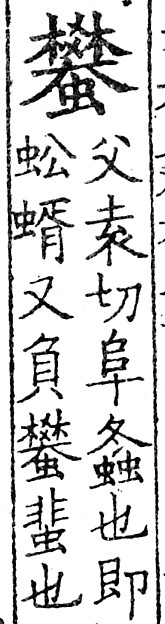 蠜
父袁切阜螽也即
蚣蝑又負蠜蜚也